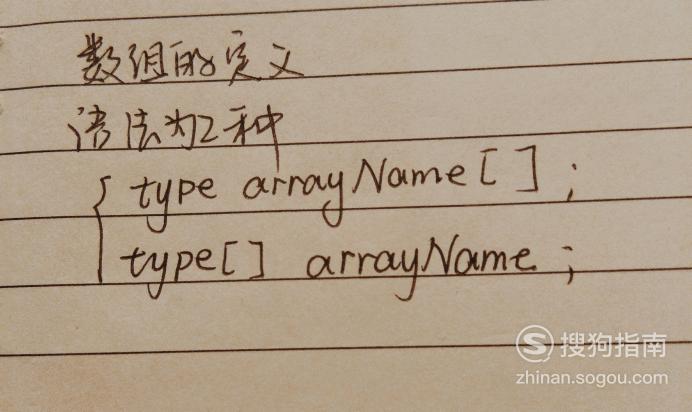 数组的定义
语法为2种
{ type arrayName [ ] ;
type[ ] arrayName ;
搜狗指南
zhinan.sogou.com